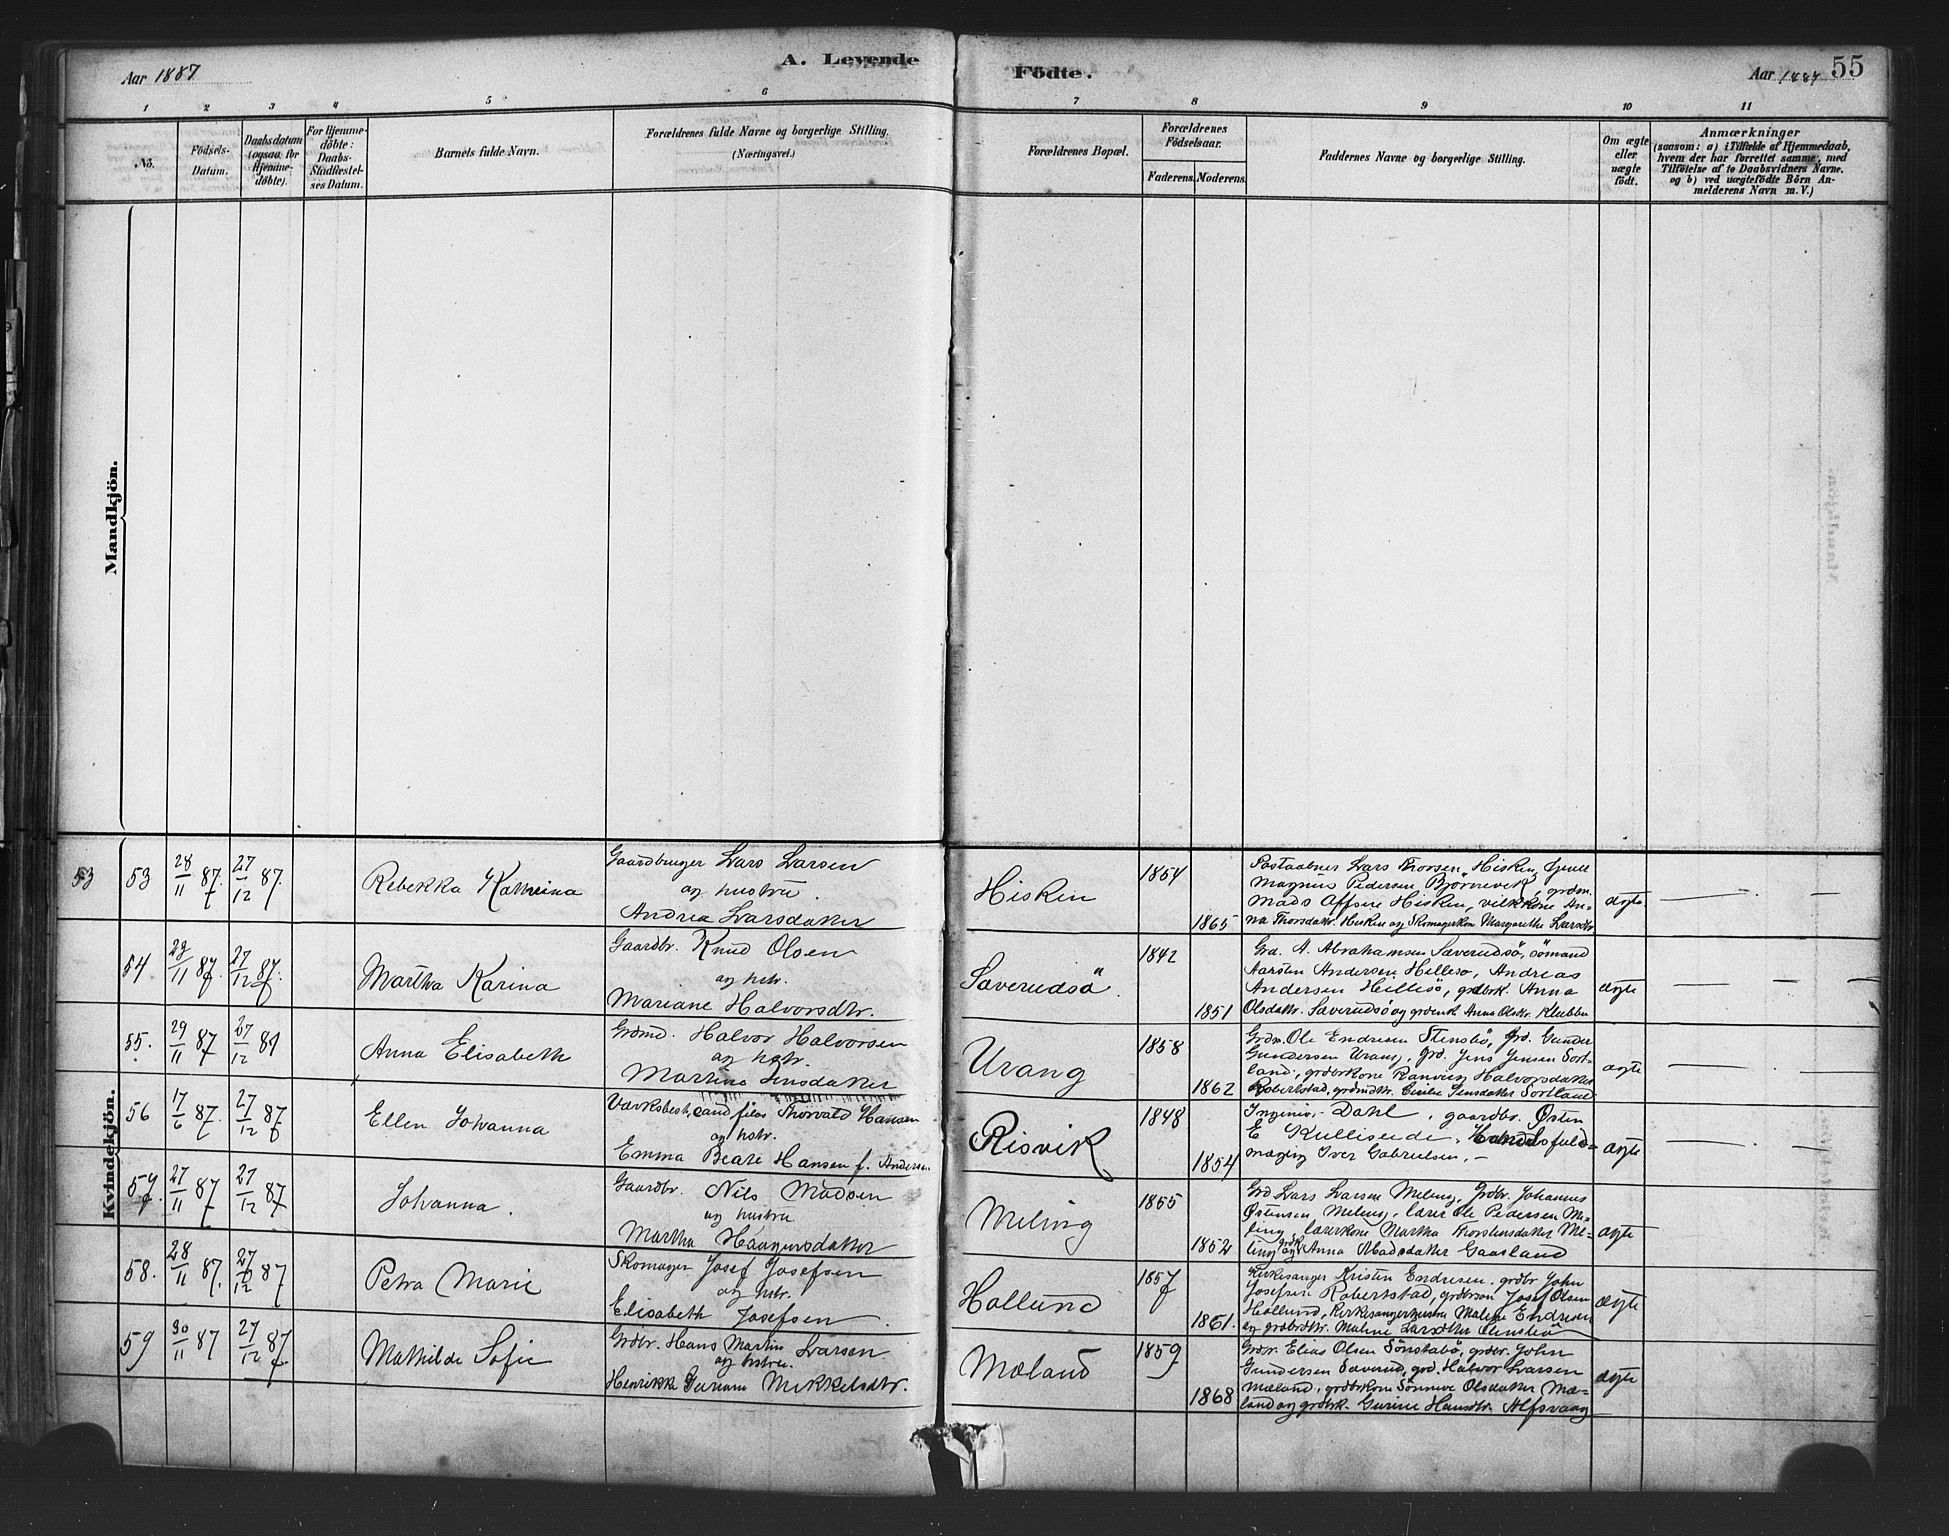 Aar 1887
A. Levende
Födte.
Aar 1887
55
1 2 3 4 5 6 7 8 9 10 11
No.
Födsels-
Datum.
Daabsdatum
(ogsaa for
Hjemme-
döbte).
For Hjemme-
döbte:
Daabs-
Stadfæstel-
ses Datum.
Barnets fulde Navn.
Forældrenes fulde Navne og borgerlige Stilling.
(Næringsvei.)
Forældrenes Bopæl.
Forældrenes
Födselsaar.
Faderens.
Moderens.
Faddernes Navne og borgerlige Stilling.
Om ægte
eller
uægte
födt.
Anmærkninger
(saasom: a) i Tilfælde af Hjemmedaab,
hvem der har forrettet samme, med
Tilföielse af to Daabsvidners Navne.
og b) ved uægtefödte Börn An-
melderens Navn m. V.)
Mandkjön.
Kvindekjön.
53
53 28/11 87. 27/12 87.
Rebekka Kathrina
Gaardbruger Lars Larsen
og hustru
Andrea Larsdatter
Hisken
1854
1865
Postaabner Lars Thorsen Hisken,
Magnus Pedersen Björnevik, grdm.
Mads Hisken, An-
na Thorsdatr. Hisken og Skomagerkone Margarethe Larsdtr
ægte
54. 11 87 27/12 87.
Martha Karina
Gaardbr. Knud Olsen
og hstr.
Mariane Halvorsdtr.
Saverudsö
1842
1851
Grd. A. Abrahamsen Saverudsö, sömand
Aarsten Andersen Hellesö, Andreas
Andersen Hillesö, grdbrk. Anna
Olsdatr. Saverudsö og Anna Olsdtr. Klubben
ægte
55. 29/11 87 27/12 87
Anna Elisabeth
Grdmd. Halvor Halvorsen
og hstr.
Martina Jensdatter
Urang
1858
1862
Grdm. Ole Endresen Stensbö, grd. Gunder
Gundersen Urang, grd. Jens Jensen Sort-
land, grdbrkone Ranveig Halvorsdatter
Robertstad, grdmdtr. Jensdatter Sortland
ægte
56 17/6 87. 27/12 87
Ellen Johanna
Værksbest, cand filos Thorvald Hansen
og hstr.
Emma Beate Hansen f. Andersen
Risvik
1848
1854
Ingeniör Dahl, gaardbr. Østen
E Kulleseide, Handelsfuld-
mægtig Iver Gabrielsen.
ægte
57. 27/11 87 27/12 87
Johanna.
Gaardbr. Nils Madsen
og hustru
Martha Haagensdatter
Meling
1855
1852
Grd Lars Larsen Meling, Grdbr. Johannes
Østensen Meling, Lærer Ole Pedersen Me-
ling, Lærerkone Martha Thorstensdatter Me-
ling og grdk. Anna Madsdatter Gaasland
ægte
58. 28/11 87. 27/12 87
Petra Marie
Skomager Josef Josefsen
og hstr.
Elisabeth Josefsen
Hollund
1857
1861.
Kirkesanger Kristen Endresen, grdbr John
Josefsen Robertstad, grdbrsön Josef Olsen
Hollund, Kirkesangerhustru Malene Endresen
og grdbrdtr. Maline Larsdtter Stensbö
ægte
59 30/11 87 27/12 87
Mathilde Sofie
Grdbr. Hans Martin Larsen
og hstru.
Henrikka Gurine Mikkelsdtr.
Mæland
1859
1868
Grdbr. Elias Olsen Sönstabö, grdbr. John
Gundersen Saverud, grd. Halvor Larsen
Mæland, grdbrkone Sönneve Olsdatter Mæ-
land og grdbrk. Gurine Hansdtr. Alfsvaag
ægte